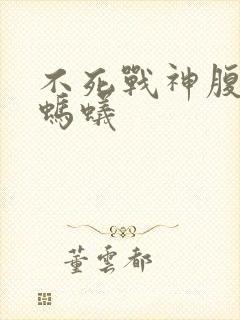 不死戰神腹
螞蟻
董雲都